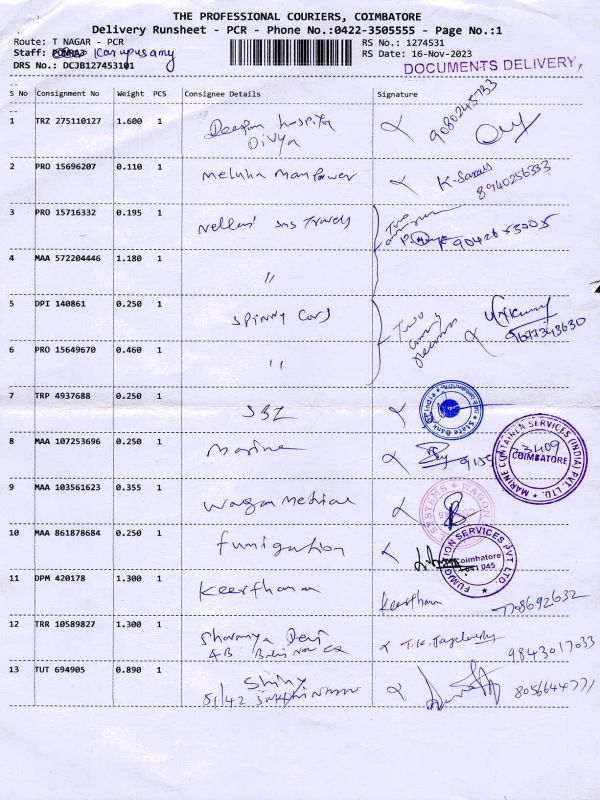 THE PROFESSIONAL COURIERS, COIMBATORE
Delivery Runsheet - PCR - Phone No.:0422-3505555 - Page No.:1
Route: T NAGAR - PCR RS No.: 1274531
Staff: Karupusamy RS Date: 16-Nov-2023
DRS No.: DCJB127453101 DOCUMENTS DELIVERY,
S No Consignment No Weight PCS Consignee Details Signature
1 TRZ 275110127 1.600 1 Deepam hospital 9080245733
Divya
2 PRO 15696207 0.110 1 Meluha Manpower K. Saras 8940256333
3 PRO 15716332 0.195 1 Nellai sns Travels Two
4 MAA 572204446 1.180 1 "
5 DPI 140861 0.250 1 Spinny Cars Two
6 PRO 15649670 0.460 1 "
7 TRP 4937688 0.250 1 SBI State Bank of India
8 MAA 107253696 0.250 1 Marine MARINE CONTAINER SERVICES (INDIA) PVT. LTD. COIMBATORE
9 MAA 103561623 0.355 1 Wagon Medical SYSTEMS WAGON
10 MAA 861878684 0.250 1 Fumigation FUMIGATION SERVICES PVT LTD. Coimbatore 641 045
11 DPM 420178 1.300 1 Keerthana Keerthana 7708692632
12 TRR 10589827 1.300 1 Sharanya Devi 9843017033
4B
13 TUT 694905 0.890 1 Shiny 8056644771
51/42